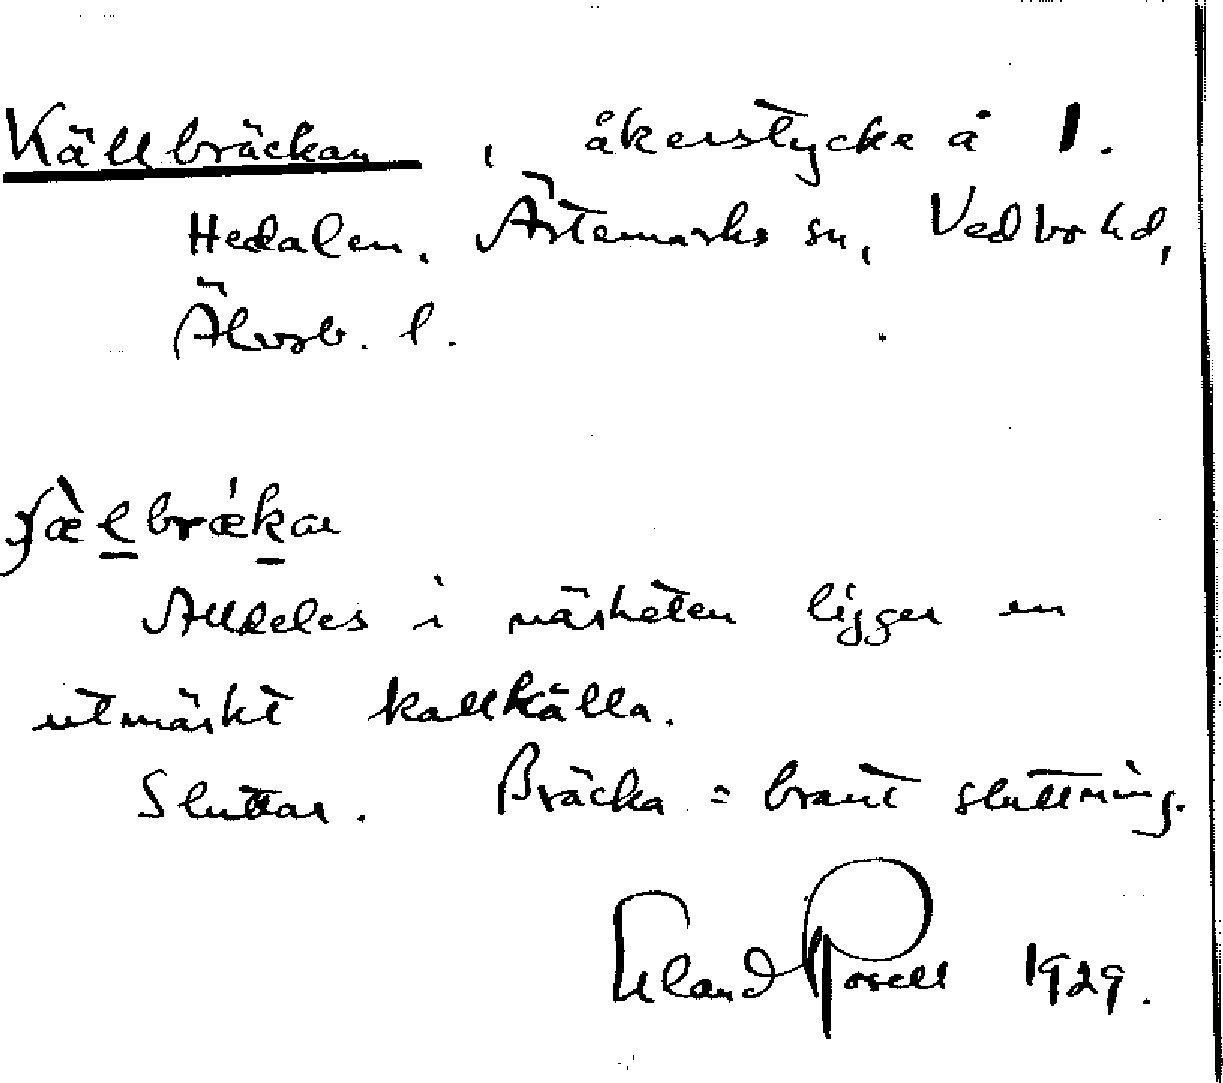 Källbräckan, åkerstycke å 1.
Hedalen, Ärtemarks sn, Vedbo hd,
Älvsb. l.
ʃæ̀lbrǽkaɹ
Alldeles i närheten ligger en
utmärkt kallkälla.
Sluttar. Bräcka = brant sluttning.
Erland Rosell 1929.